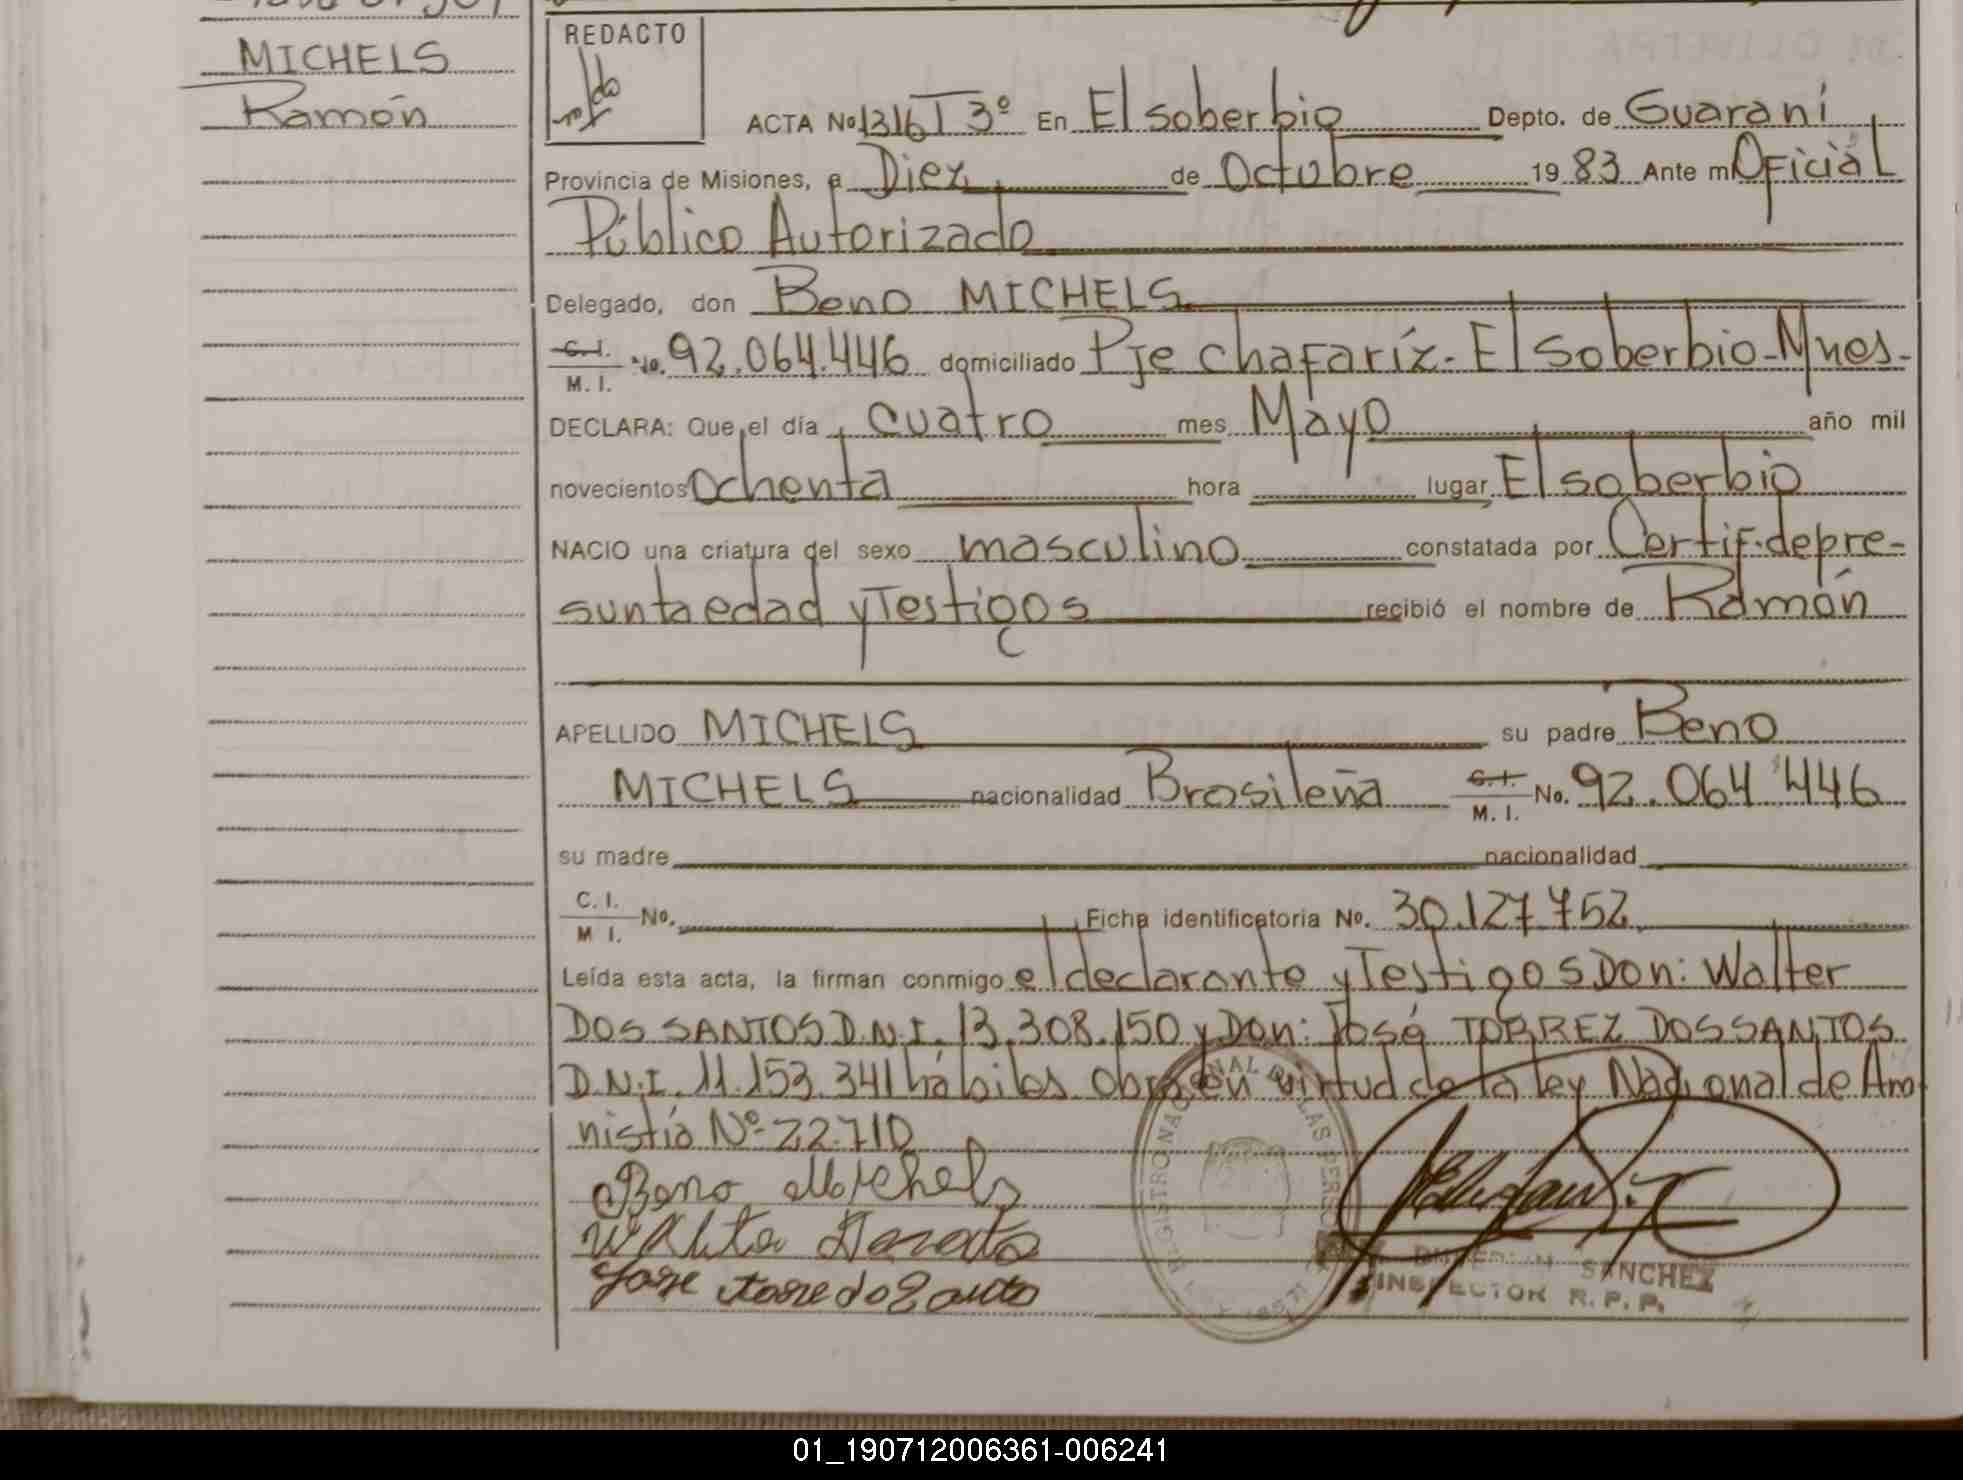 MICHELS
Ramón
REDACTO
ACTA Nº 1316 T 3º En El soberbio Depto. de Guaraní
Provincia de Misiones, a Diez de Octubre 1983 Ante mi Oficial
Público Autorizado
Delegado, don Beno MICHELS
C. I. M. I. No. 92.064.446 domiciliado Pje chafaríz - El Soberbio - Mnes -
DECLARA: Que el día cuatro mes Mayo año mil
novecientos ochenta hora lugar El soberbio
NACIO una criatura del sexo masculino constatada por Certif. de pre-
sunta edad y Testigos recibió el nombre de Ramón
APELLIDO MICHELS su padre Beno
MICHELS nacionalidad Brasileña C. I. M. I. No. 92.064 446
su madre nacionalidad
C. I. M I. No. Ficha identificatoria Nº. 30.127.752
Leída esta acta, la firman conmigo el declarante y Testigos Don: Walter
DOS SANTOS D.N.I. 13.308.150 y Don: José TORREZ DOS SANTOS
D.N.I. 11.153.341 hábiles obra en virtud de la ley Nacional de Am
nistía Nº 22.710
Beno Michels
SANCHEZ
INSPECTOR R. P. P.
01_190712006361-006241